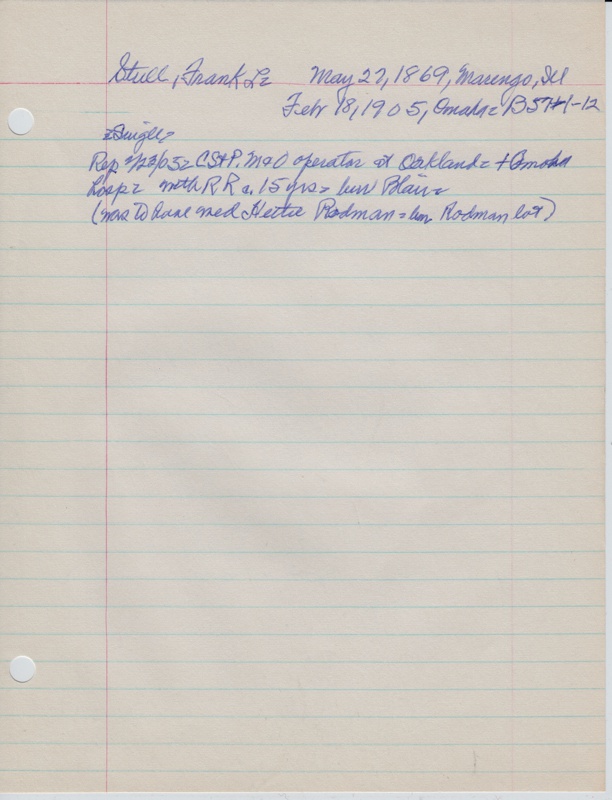 Stull, Frank L= May 27, 1869, Marengo, Ill
Feb 18, 1905, Omaha= B57H1-12
=Single=
Rep 2/23/05= CStP. M&O operator at Oakland= + Omaha
Hosp= with RR a. 15 yrs= bur Blair=
(was to have med Hettie Rodman= bur Rodman lot)